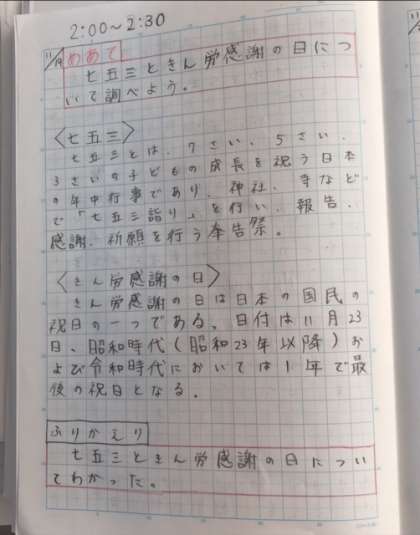 2:00～2:30
11/19 めあて
七五三ときん労感謝の日につ
いて調べよう。
〈七五三〉
七五三とは、7さい、5さい、
3さいの子どもの成長を祝う日本
の年中行事であり、神社、寺など
で「七五三詣り」を行い、報告、
感謝、祈願を行う奉告祭。
〈きん労感謝の日〉
きん労感謝の日は日本の国民の
祝日の一つである。日付は11月23
日、昭和時代(昭和23年以降)お
よび令和時代においては1年で最
後の祝日となる。
ふりかえり
七五三ときん労感謝の日につい
てわかった。